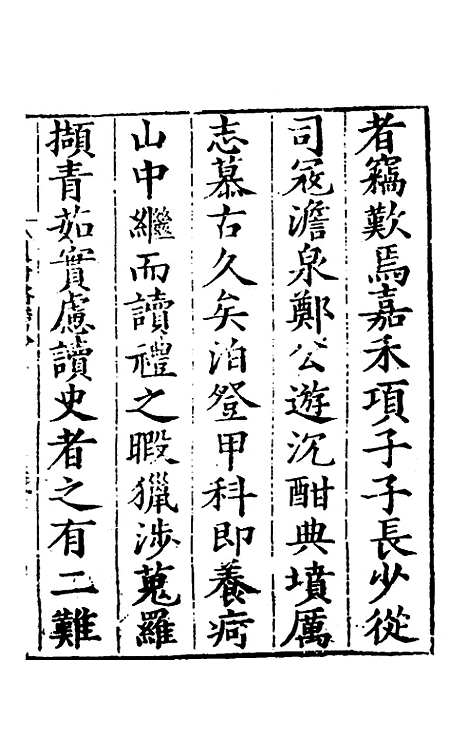 者竊歎焉嘉禾項子子長少從
司寇澹泉鄭公遊沉酣典墳厲
志慕古久矣洎登甲科即養疴
山中繼而讀禮之暇獵涉蒐羅
擷青茹實慮讀史者之有二難